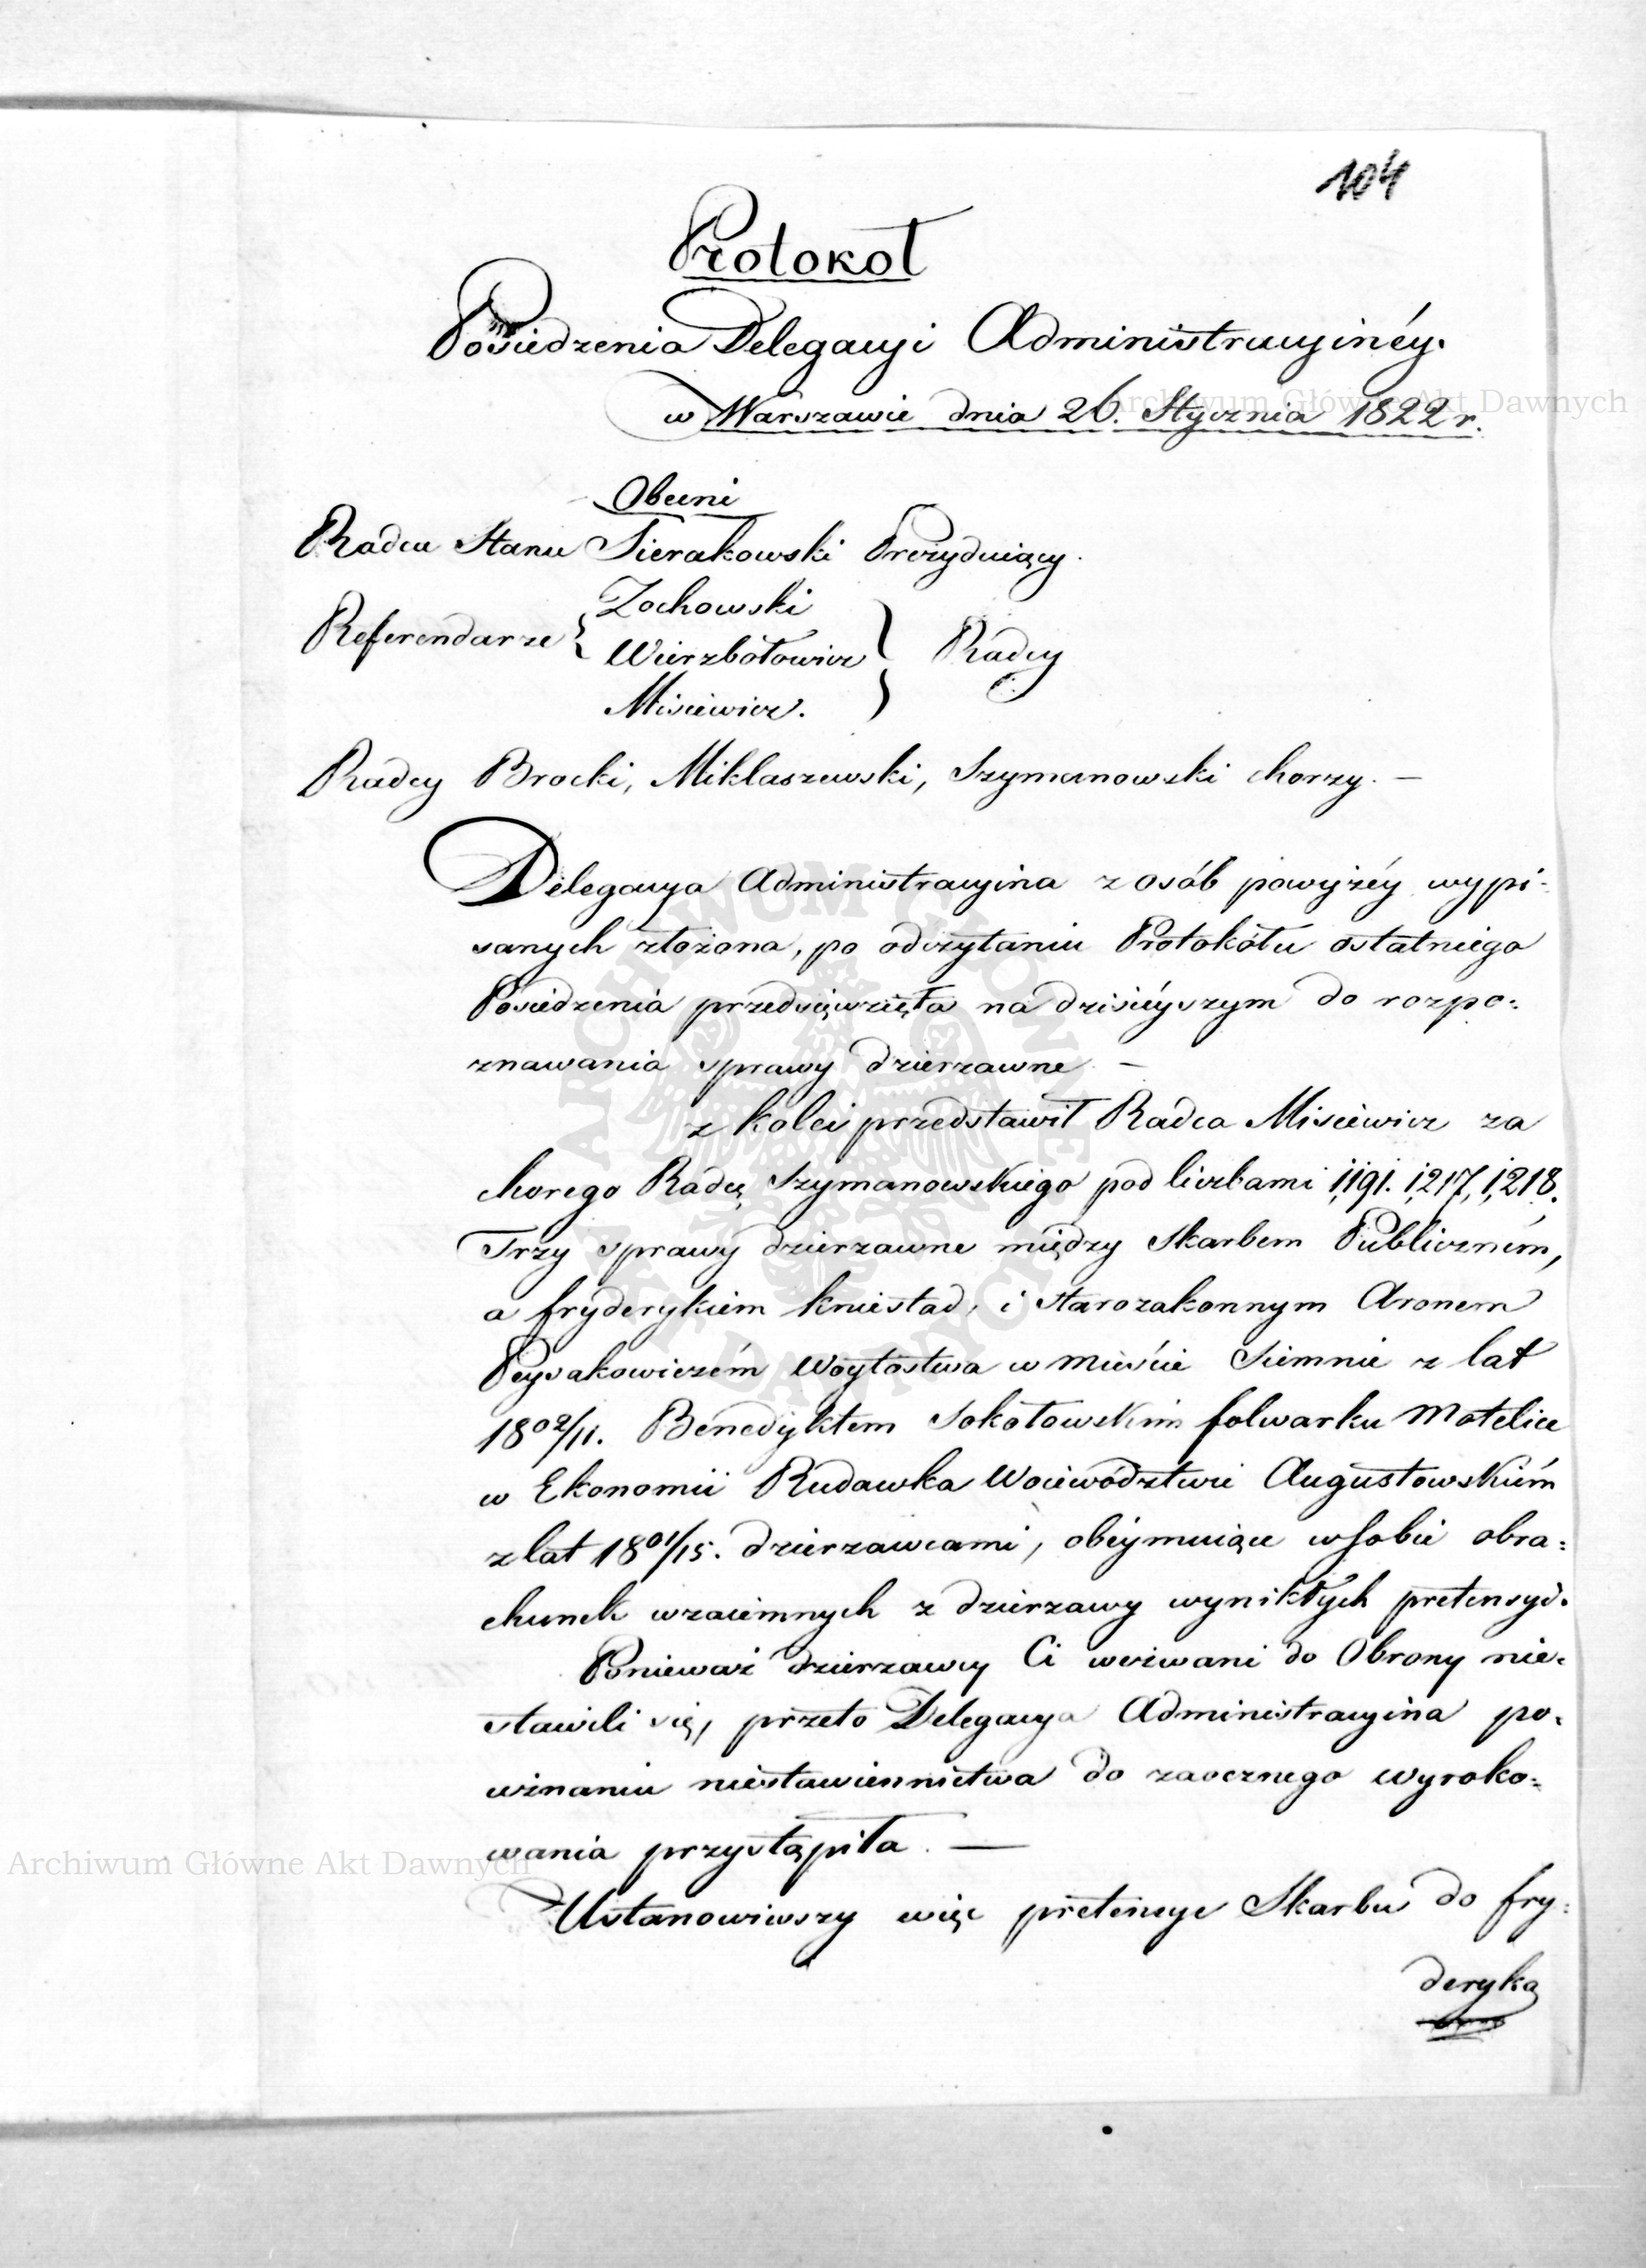 104
Protokoł
Posiedzenia Delegacyi Administracyinéy.
w Warszawie dnia 26. Stycznia 1822 r.
Obecni
Radca Stanu Sierakowski Prezyduiący.
Zochowski
Referendarze Wierzbołowicz Radcy
Misiewicz.
Radcy Brocki, Miklaszewski, Szymanowski chorzy. —
Delegacya Administracyina z osób powyżéy wypi-
sanych złożona, po odczytaniu Protokółu ostatniego
Posiedzenia przedsięwzięła na dzisiéyszym do rozpo-
znawania sprawy dzierzawne —
z kolei przedstawił Radca Misiewicz za
chorego Radcę Szymanowskiego pod liczbami 1,191. 1,217, 1,218.
Trzy sprawy dzierzawne między Skarbem Publiczném,
a fryderykiem kniestad, i starozakonnym Aronem
Peysakowiczém Woytostwa w mieście Siemnie z lat
1802/11. Benedyktem Sokołowskim folwarku Motelice
w Ekonomii Rudawka Woiewództwie Augustowskiém
z lat 1801/15. dzierzawcami, obeymuiące w sobie obra-
chunek wzaiemnych z dzierzawy wynikłych pretensyi.
Ponieważ dzierzawcy Ci wezwani do Obrony nie-
stawili się, przeto Delegacya Administracyina po-
uznaniu niestawiennictwa do zaocznego wyroko-
wania przystąpiła. —
Ustanowiwszy więc pretensye Skarbu do fry-
deryka
Archiwum Główne Akt Dawnych
ARCHIWUM GŁÓWNE AKT DAWNYCH
Archiwum Główne Akt Dawnych